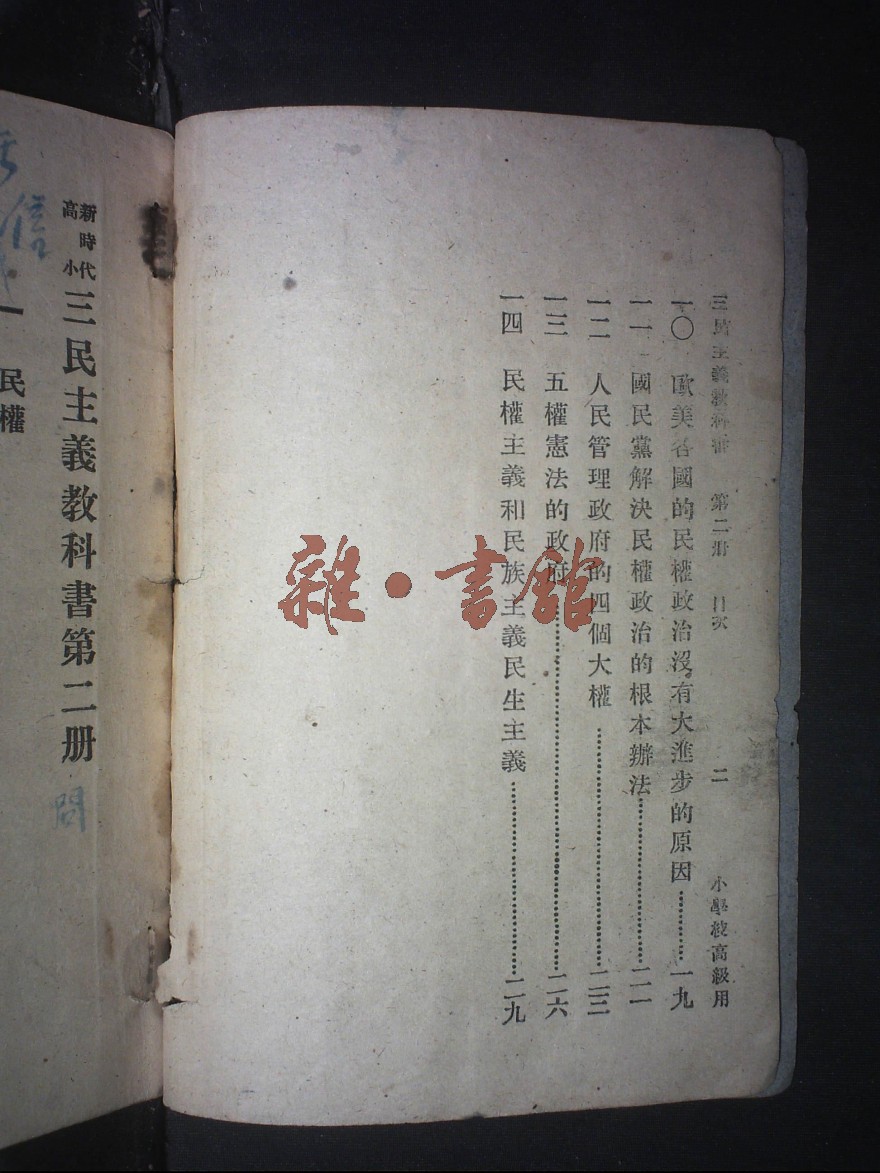 三民主義教科書 第二册 目次 二 小學校高級用
一〇 歐美各國的民權政治沒有大進步的原因…………一九
一一 國民黨解決民權政治的根本辦法…………二一
一二 人民管理政府的四個大權…………二三
一三 五權憲法的政府…………二六
一四 民權主義和民族主義民生主義…………二九
雜·書館
新時代高小 三民主義教科書第二册
問
一 民權
信